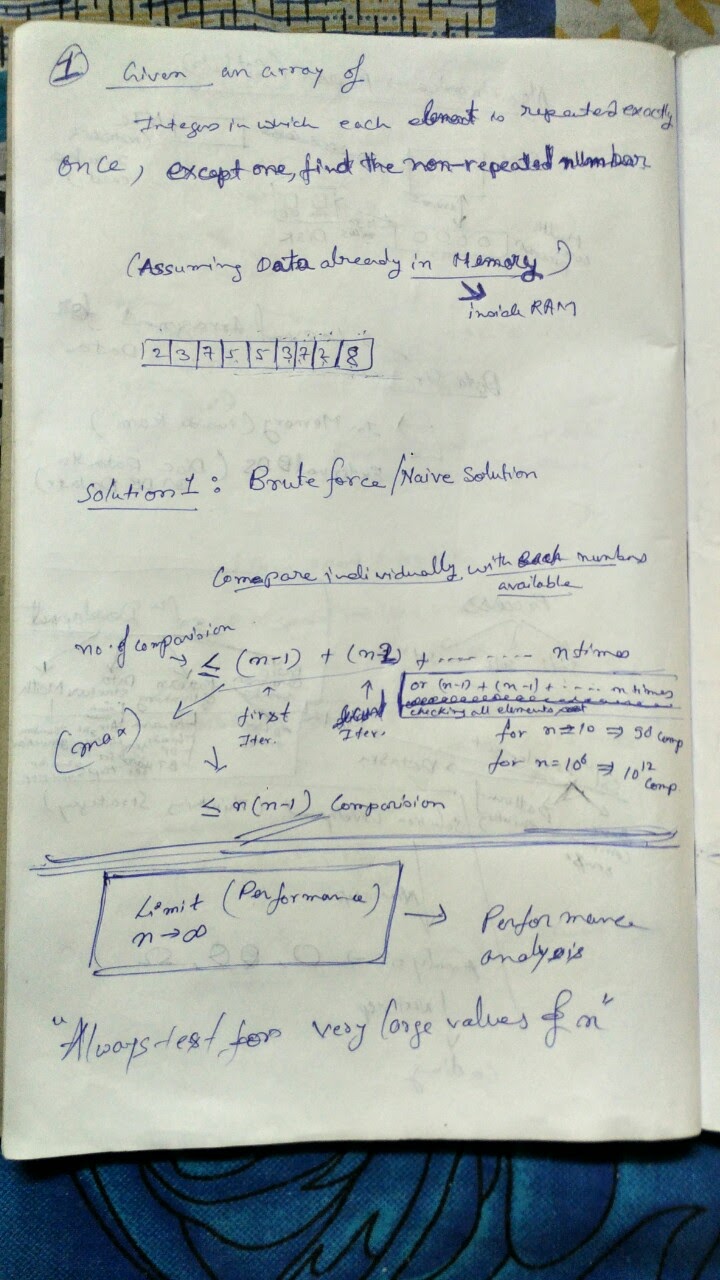 1 Given an array of
Integers in which each element is repeated exactly
once, except one, find the non-repeated number
(Assuming Data already in Memory)
↘
inside RAM
2 3 7 5 5 3 7 2 8
Solution 1: Brute force / Naive Solution
Compare individually with each numbers
available
no. of comparision
→ ≤ (n-1) + (n-2) + ........... n times
or (n-1) + (n-1) + ..... n times
checking all elements
(max)
↑ first Iter.
↑ second Iter.
for n=10 ⇒ 90 comp
for n=10⁶ ⇒ 10¹² comp.
↓
≤ n(n-1) Comparision
Limit (Performance)
n→∞
→ Performance
analysis
"Always test for very large values of n"